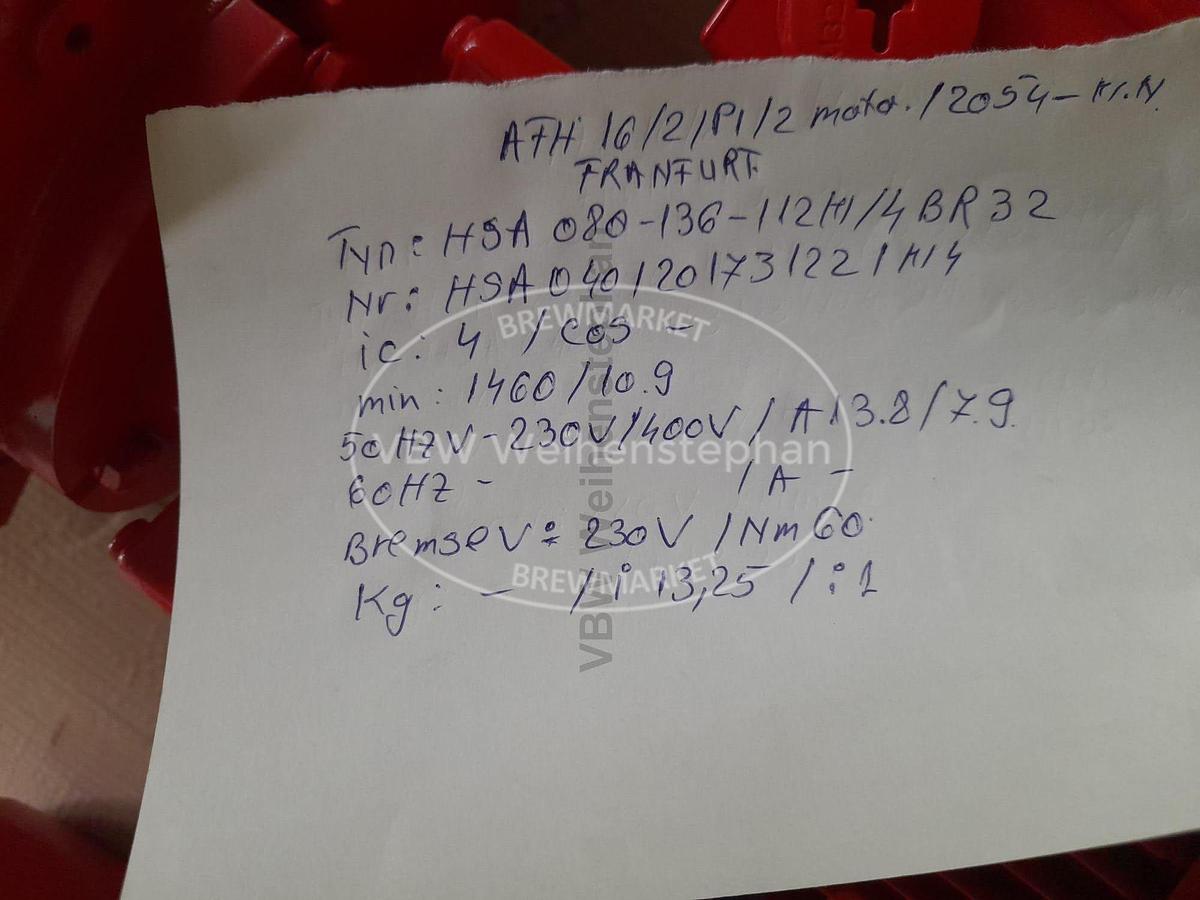 ATH 16/2/P1/2 motor. /2054 - Kr.N.
FRANFURT
Typ: HSA 080-136-112M/4 BR32
Nr: HSA 040/20173122/M4
ic: 4 / cos -
min: 1460/10.9
50HZ V - 230V/400V / A 13.8/7.9.
60HZ - / A -
Bremse V: 230V / Nm 60.
Kg: - / i 13,25 / :1
BREWMARKET
VBW Weihenstephan
BREWMARKET
VBW Weihenstephan